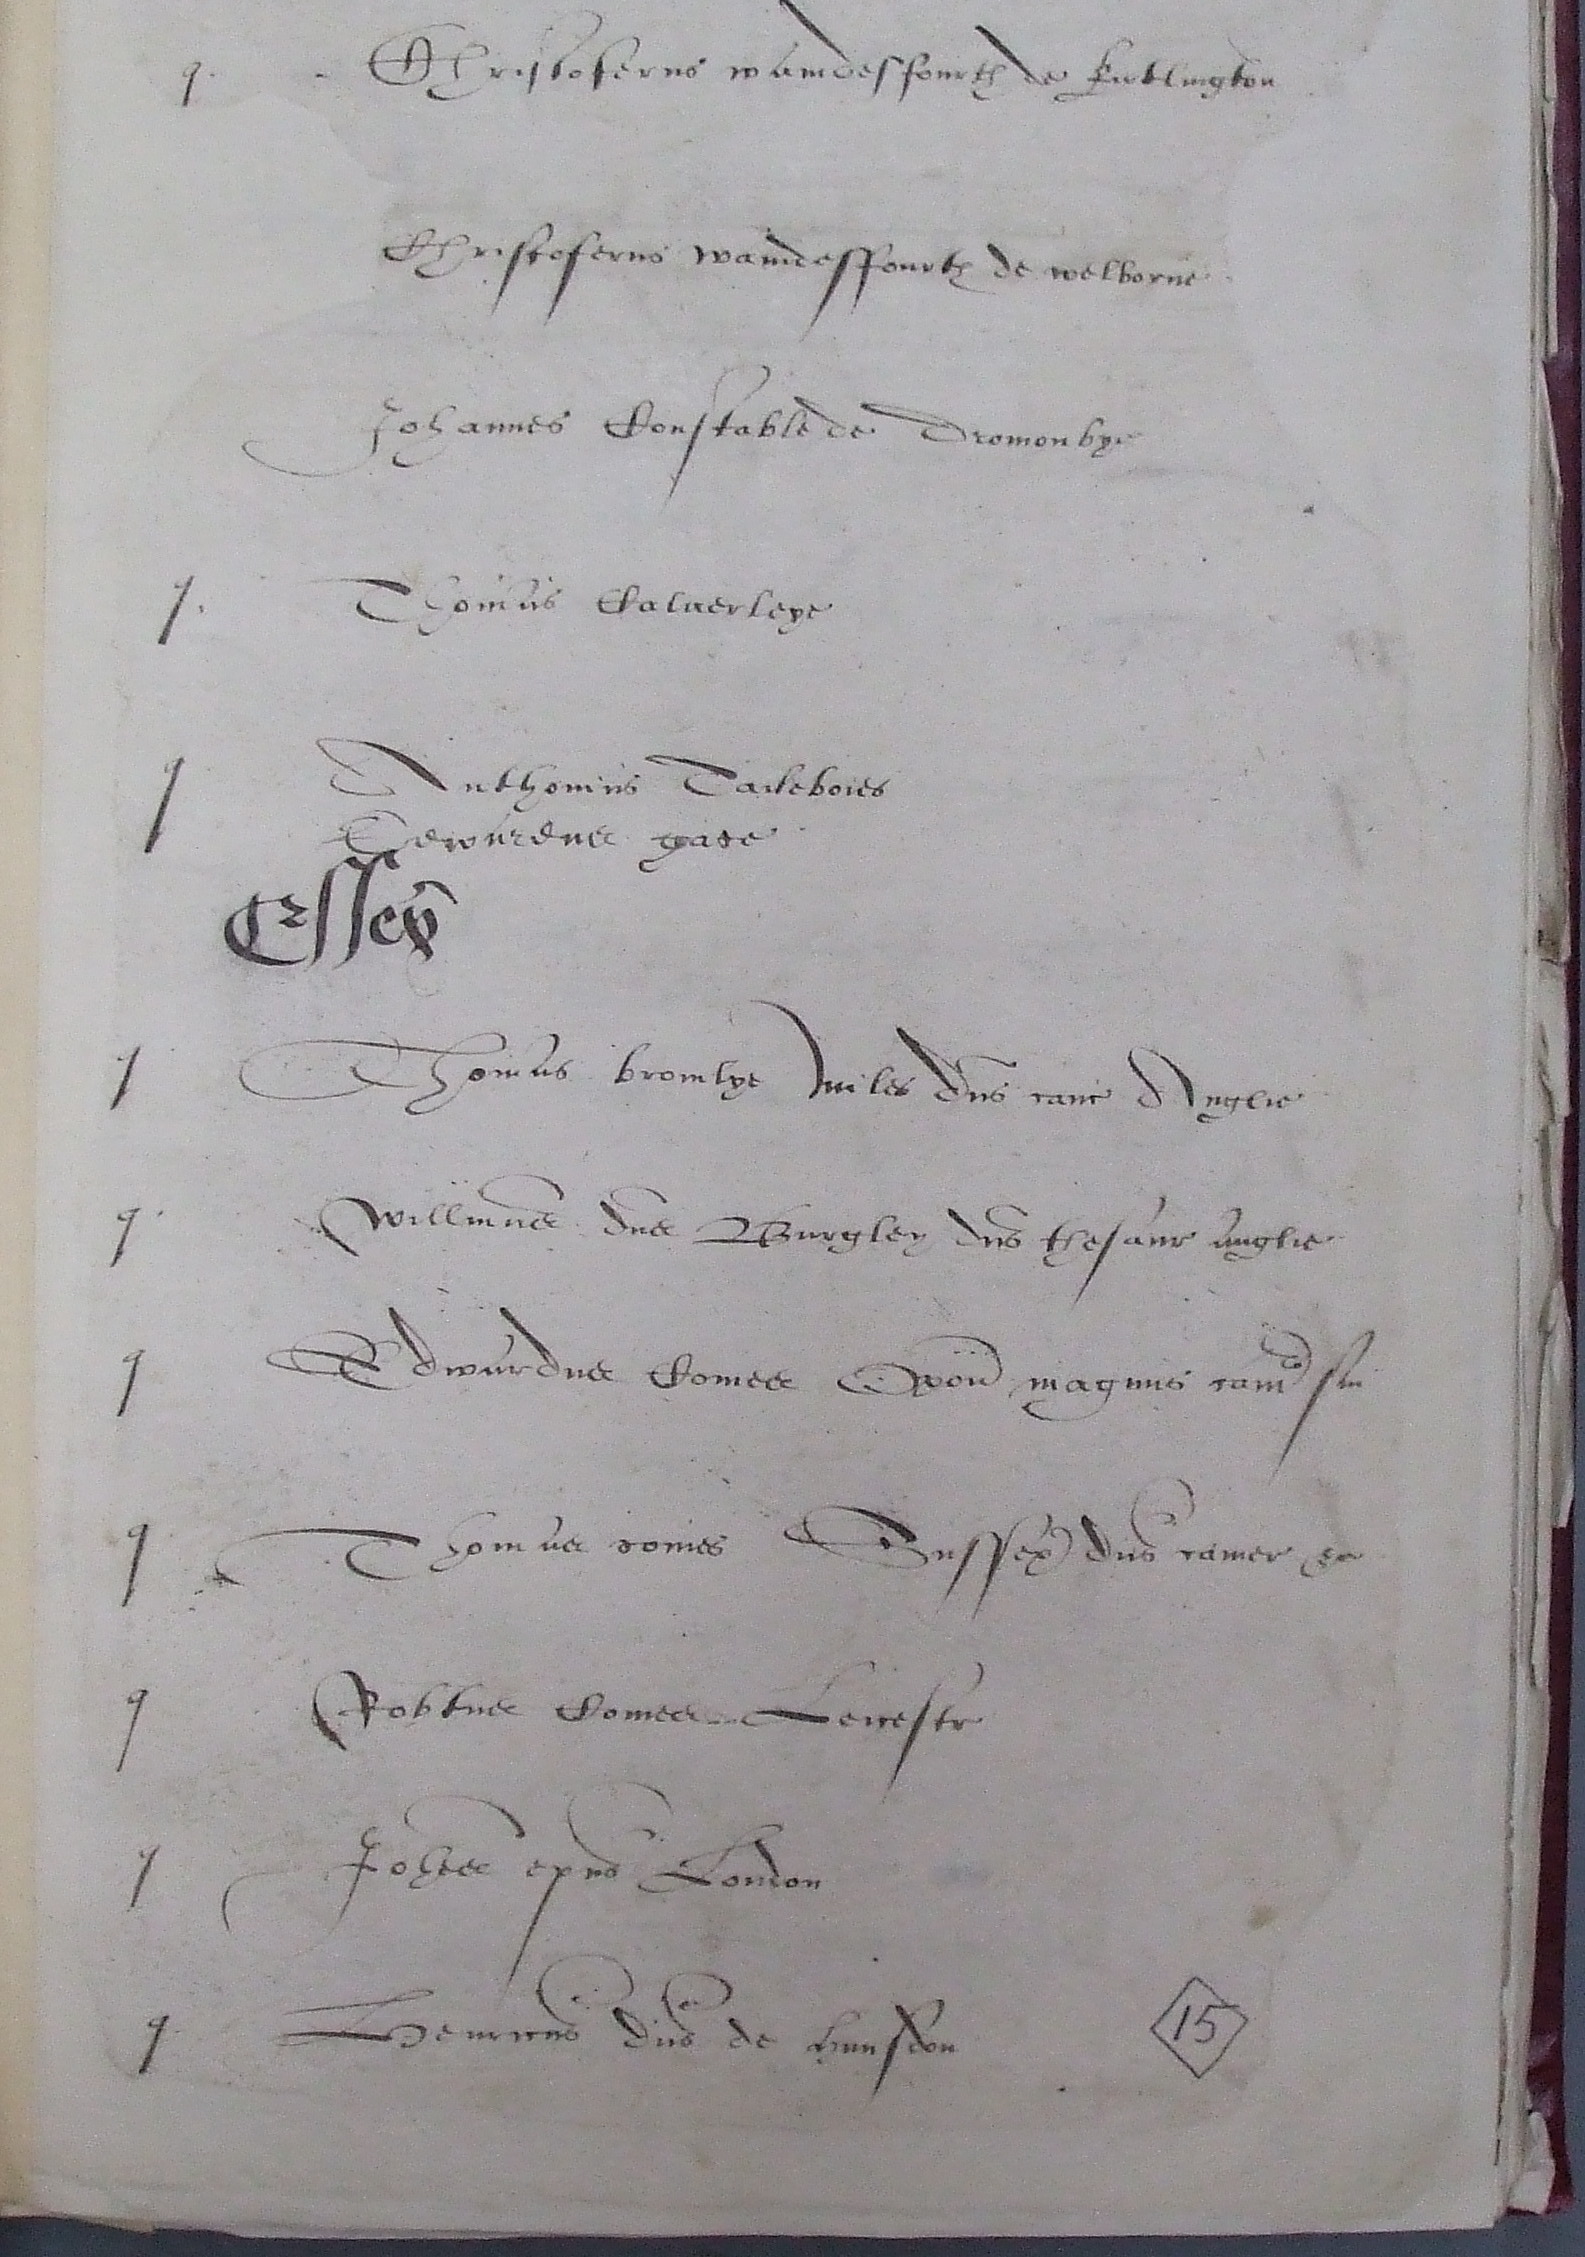 q. Christoferus wandesfourth de kirtlington
Christoferus wandesffourth de welborne
Johannes Constable de Dromonbye
q. Thomas Calverleye
q Anthonius Tailebois
Edwardus gate
Essex
q Thomas bromlye miles dns canc Anglie
q. Willmus dns Burgley dns thesaur anglie
q Edwardus Comes Oxon magnus cam
q Thomas comes Sussex dns camer
q Robtus Comes Leicestr
q Johes epus London
q Henricus dns de hunsdon
15